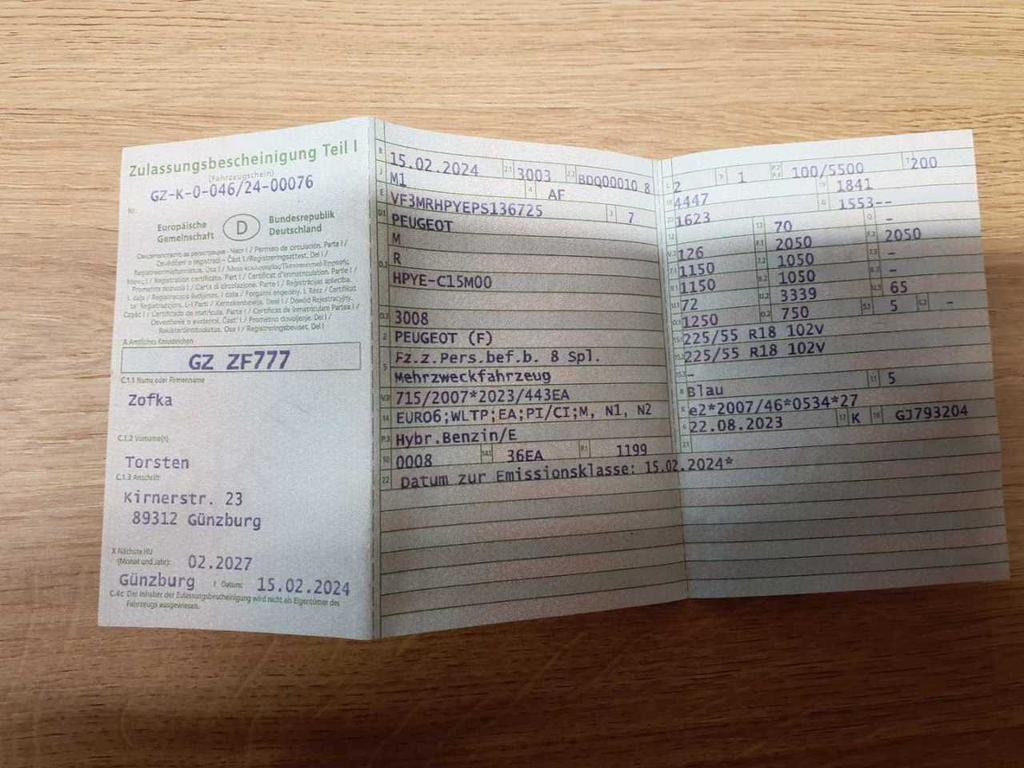 Zulassungsbescheinigung Teil I
(Fahrzeugschein)
Nr. GZ-K-0-046/24-00076
Europäische Gemeinschaft D Bundesrepublik Deutschland
A Amtliches Kennzeichen
GZ ZF777
C.1.1 Name oder Firmenname
Zofka
C.1.2 Vorname(n)
Torsten
C.1.3 Anschrift
Kirnerstr. 23
89312 Günzburg
X Nächste HU
(Monat und Jahr) 02.2027
Günzburg I Datum: 15.02.2024
C.4c Der Inhaber der Zulassungsbescheinigung wird nicht als Eigentümer des
Fahrzeugs ausgewiesen.
B 15.02.2024 2.1 3003 2.2 BDQ00010 8
J M1 4 AF
E VF3MRHPYEPS136725 3 7
D.1 PEUGEOT
M
R
HPYE-C15M00
D.3 3008
2 PEUGEOT (F)
5 Fz.z.Pers.bef.b. 8 Spl.
Mehrzweckfahrzeug
V.9 715/2007*2023/443EA
14 EURO6;WLTP;EA;PI/CI;M, N1, N2
P.3 Hybr.Benzin/E
10 0008 14.1 36EA P.1 1199
22 Datum zur Emissionsklasse: 15.02.2024*
L 2 9 1 P.2 P.4 100/5500 T 200
18 4447 19 1841
20 1623 G 1553--
12 - 13 70 Q -
V.7 126 F.1 2050 F.2 2050
7.1 1150 7.2 1050 7.3 -
8.1 1150 8.2 1050 8.3 -
U.1 72 U.2 3339 U.3 65
O.1 1250 O.2 750 S.1 5 S.2 -
15.1 225/55 R18 102V
15.2 225/55 R18 102V
15.3 -
R Blau 11 5
K e2*2007/46*0534*27
6 22.08.2023 17 K 16 GJ793204
21